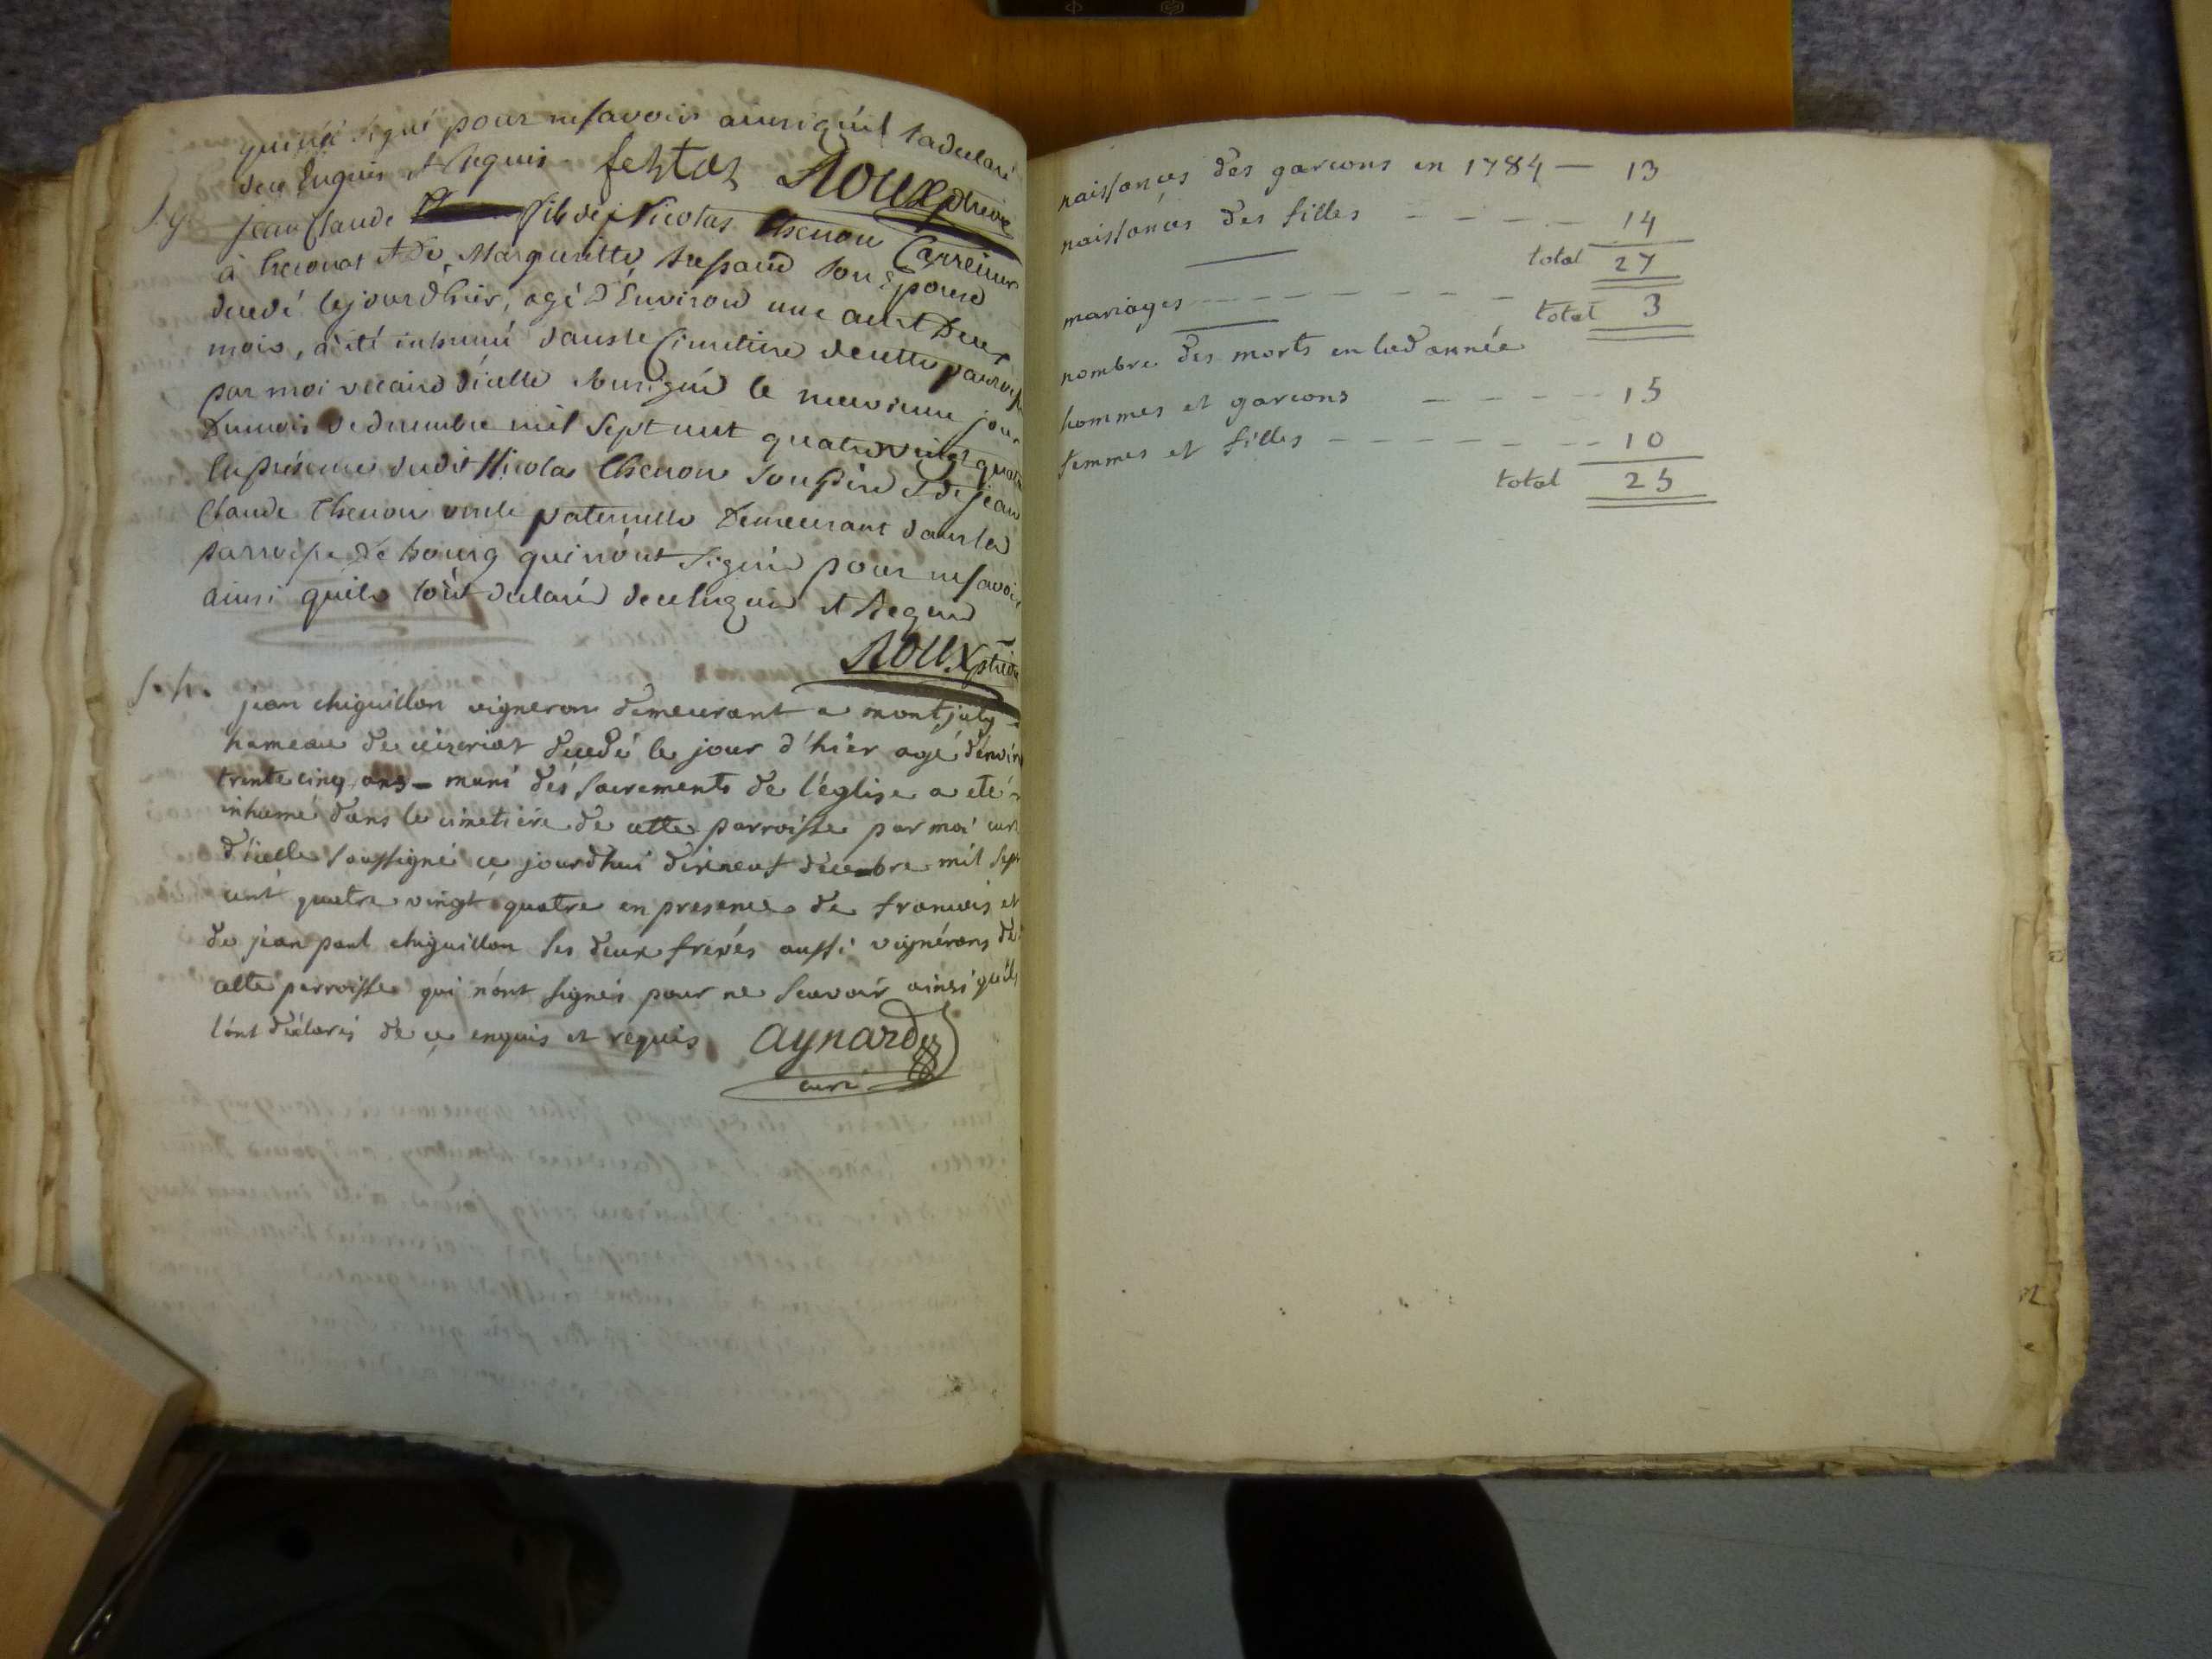 signé pour ne savoir ainsi qu'il la declaré
de ce Enquis et Requis fertor Roux ptre vic
S. g. jean Claude fils de Nicolas Chenou Carreireur
à et de Margueritte son Epouse
decedé le jour d'hier, agé d'Environ une année et Deux
mois, a été inhumé dans le Cimetiere de cette parroisse
par moi vicaire d'icelle soussigné le neuvieme jour
Du mois de decembre mil sept cent quatre vingt quatre
En présence dudit Nicolas Chenou son père et de jean
Claude Chenou oncle paternelle Demeurant dans la
parroisse de bourg qui n'ont signé pour ne savoir
ainsi qu'ils l'ont declaré de ce Enquis et Requis
Roux ptre vic
jean chiguillon vigneron demeurant a montjuly
hameau de ceizeriat decedé le jour d'hier agé d'environ
trente cinq ans – muni des sacrements de l'église a eté
inhumé dans le cimetiére de cette parroisse par moi curé
d'icelle soussigné ce jourdhui dixneuf décembre mil sept
cent quatre vingt quatre en presence de francois et
de jean paul chiguillon ses deux frerés aussi vignérons de
cette parroisse qui n'ont signés pour ne scavoir ainsi qu'ils
l'ont déclarés de ce enquis et requis aynard
curé
naissances des garcons en 1784 — 13
naissances des filles - - - - 14
total 27
mariages - - - - - - - total 3
nombre des morts en lad année
hommes et garcons - - - - 15
femmes et filles - - - - - - - 10
total 25